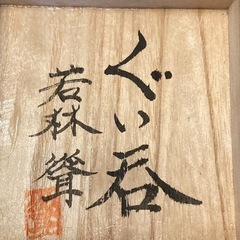 ぐい呑
若林聳